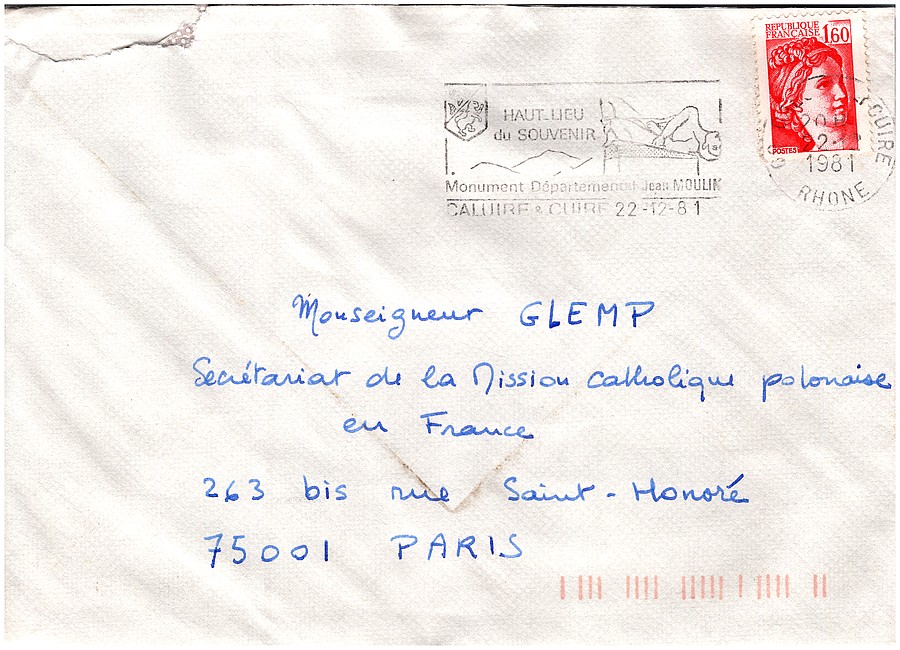 RÉPUBLIQUE
FRANÇAISE 1,60
POSTES
HAUT-LIEU
du SOUVENIR
Monument Départemental Jean MOULIN
CALUIRE & CUIRE 22-12-81
CUIRE
1981
RHONE
Monseigneur GLEMP
Secrétariat de la Mission catholique polonaise
en France
263 bis rue Saint-Honoré
75001 PARIS